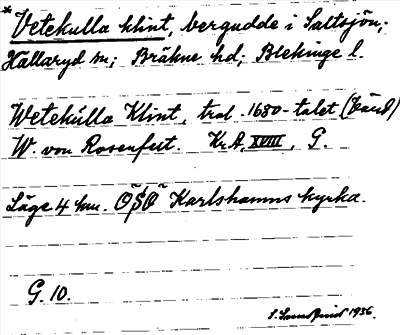 * Vetekulla klint, bergudde i Saltsjön;
Hällaryd sn; Bräkne hd; Blekinge l.
Wetekulla Klint, trol. 1680-talet
W. von Rosenfeit. Kr.A, XVIII, G.
Läge 4 km. OSO Karlshamns kyrka.
G. 10.
1936.